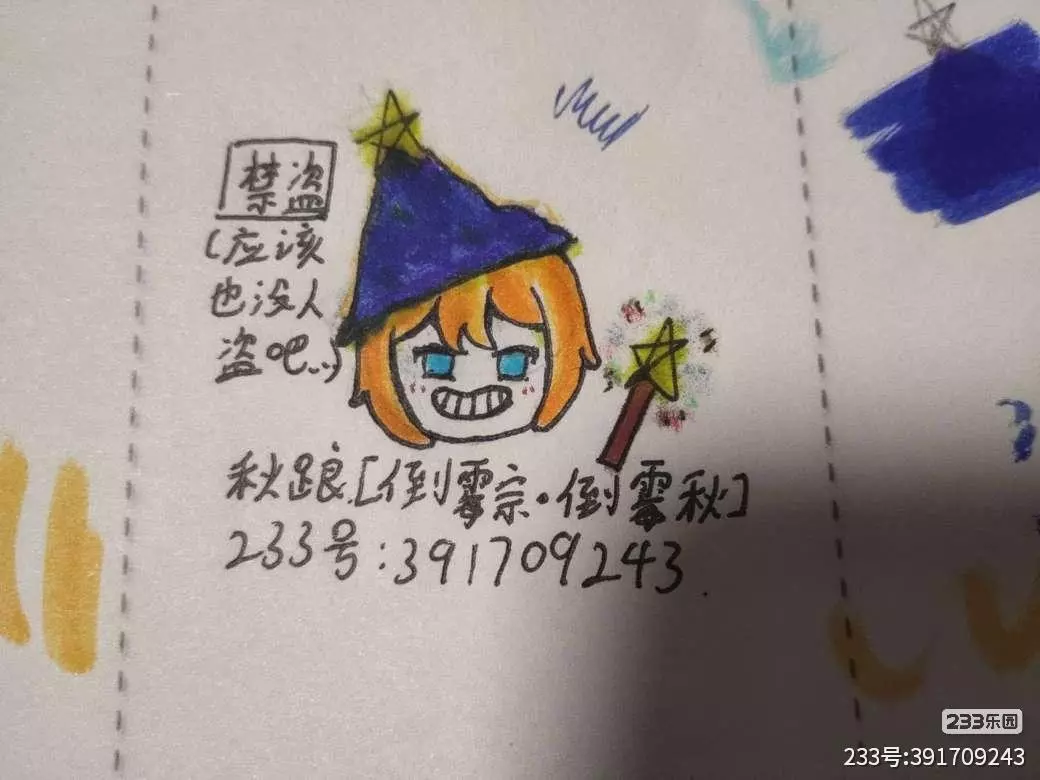 禁盗
(应该
也没人
盗吧...)
秋踉[倒霉宗·倒霉秋]
233号:391709243
233乐园
233号:391709243